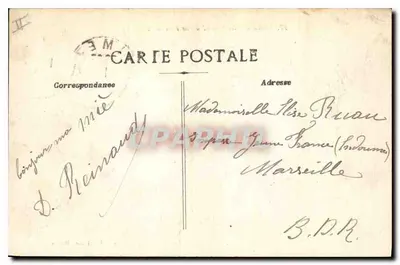 II
CARTE POSTALE
Correspondance
Adresse
bonjour ma mie
D. Reinaud
Mademoiselle Elise Ruau
Jeune France (Endoume)
Marseille
B.D.R.